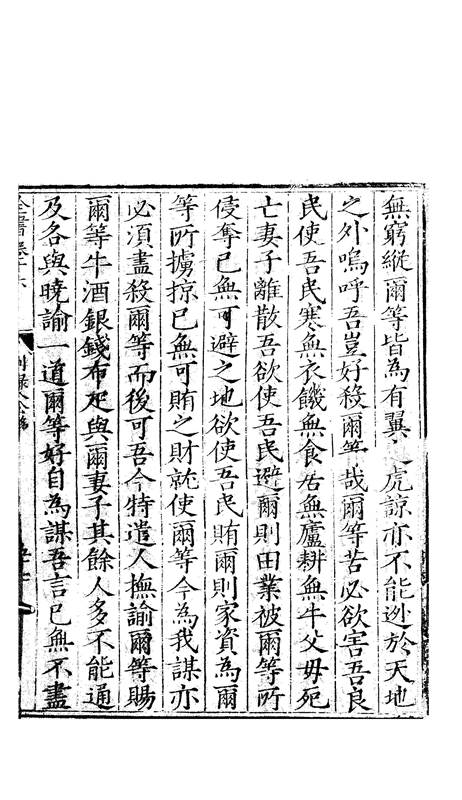 無窮縱爾等皆為有翼虎諒亦不能逊於天地
之外嗚呼吾豈好殺爾等哉爾等苦必欲害吾良
民使吾民寒無衣饑無食居無廬耕無牛父毋死
亡妻子離散吾欲使吾民避爾則田業被爾等所
侵奪已無可避之地欲使吾民賄爾則家資為爾
等所擄掠已無可賄之財就使爾等今為我謀亦
必須盡殺爾等而後可吾今特遣人撫諭爾等賜
爾等牛酒銀錢布疋與爾妻子其餘人多不能通
及各與曉諭一道爾等好自為謀吾言已無不盡
全書卷十六 別錄八公移